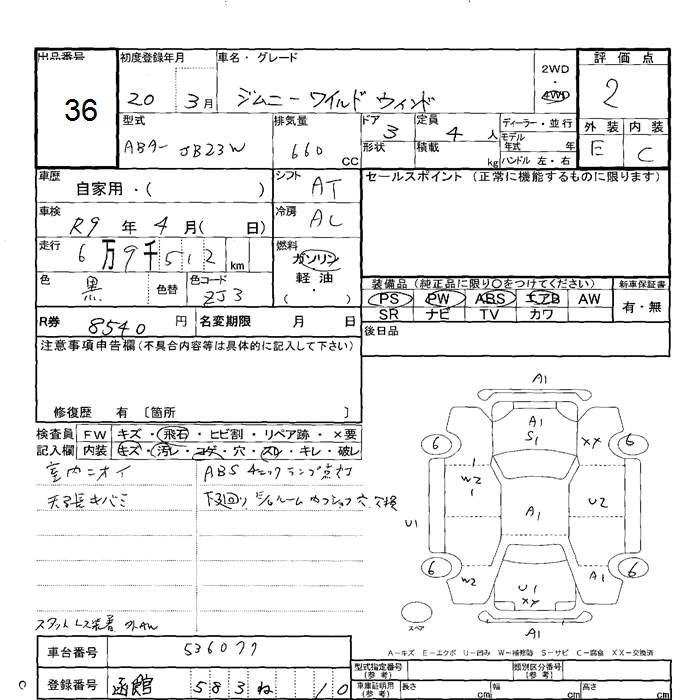 出品番号
36
初度登録年月
20 3月
車名・グレード
ジムニー ワイルド ウィンド
2WD
・
4WD
評価点
2
外装 内装
E C
型式
ABA- JB23W
排気量
660 CC
ドア
3
形状
定員
4 人
積載
kg
ディーラー・並行
モデル
年式 年
ハンドル 左・右
車歴
自家用・( )
シフト
AT
セールスポイント (正常に機能するものに限ります)
車検
R9 年 4 月( 日)
冷房
AC
走行
6万9千512 km
燃料
ガソリン
軽油
( ・ )
色
黒
色替
色コード
ZJ3
装備品 (純正品に限り○をつけてください)
新車保証書
PS PW ABS エアB AW
有・無
SR ナビ TV カワ
R券
8540 円
名変期限 月 日
後日品
注意事項申告欄(不具合内容等は具体的に記入して下さい)
修復歴 有 〔箇所 〕
検査員 FW キズ・飛石・ヒビ割・リペア跡・×要
記入欄 内装 キズ・汚レ・コゲ・穴・スレ・キレ・破レ
室内ニオイ
ABS チェックランプ点灯
天張キバミ
下廻り
A1
A1
S1
XX
6 6
W2
U1
A1
U2
6 6
W2
U1
XY
A1
スペア
A1
外AW
A－キズ E－エクボ U－凹み W－補修跡 S－サビ C－腐食 XX－交換済
車台番号
536077
登録番号
函館 583 ね 10
型式指定番号
(参考)
類別区分番号
(参考)
車庫証明用
(参考)
長さ cm 幅 cm 高さ cm